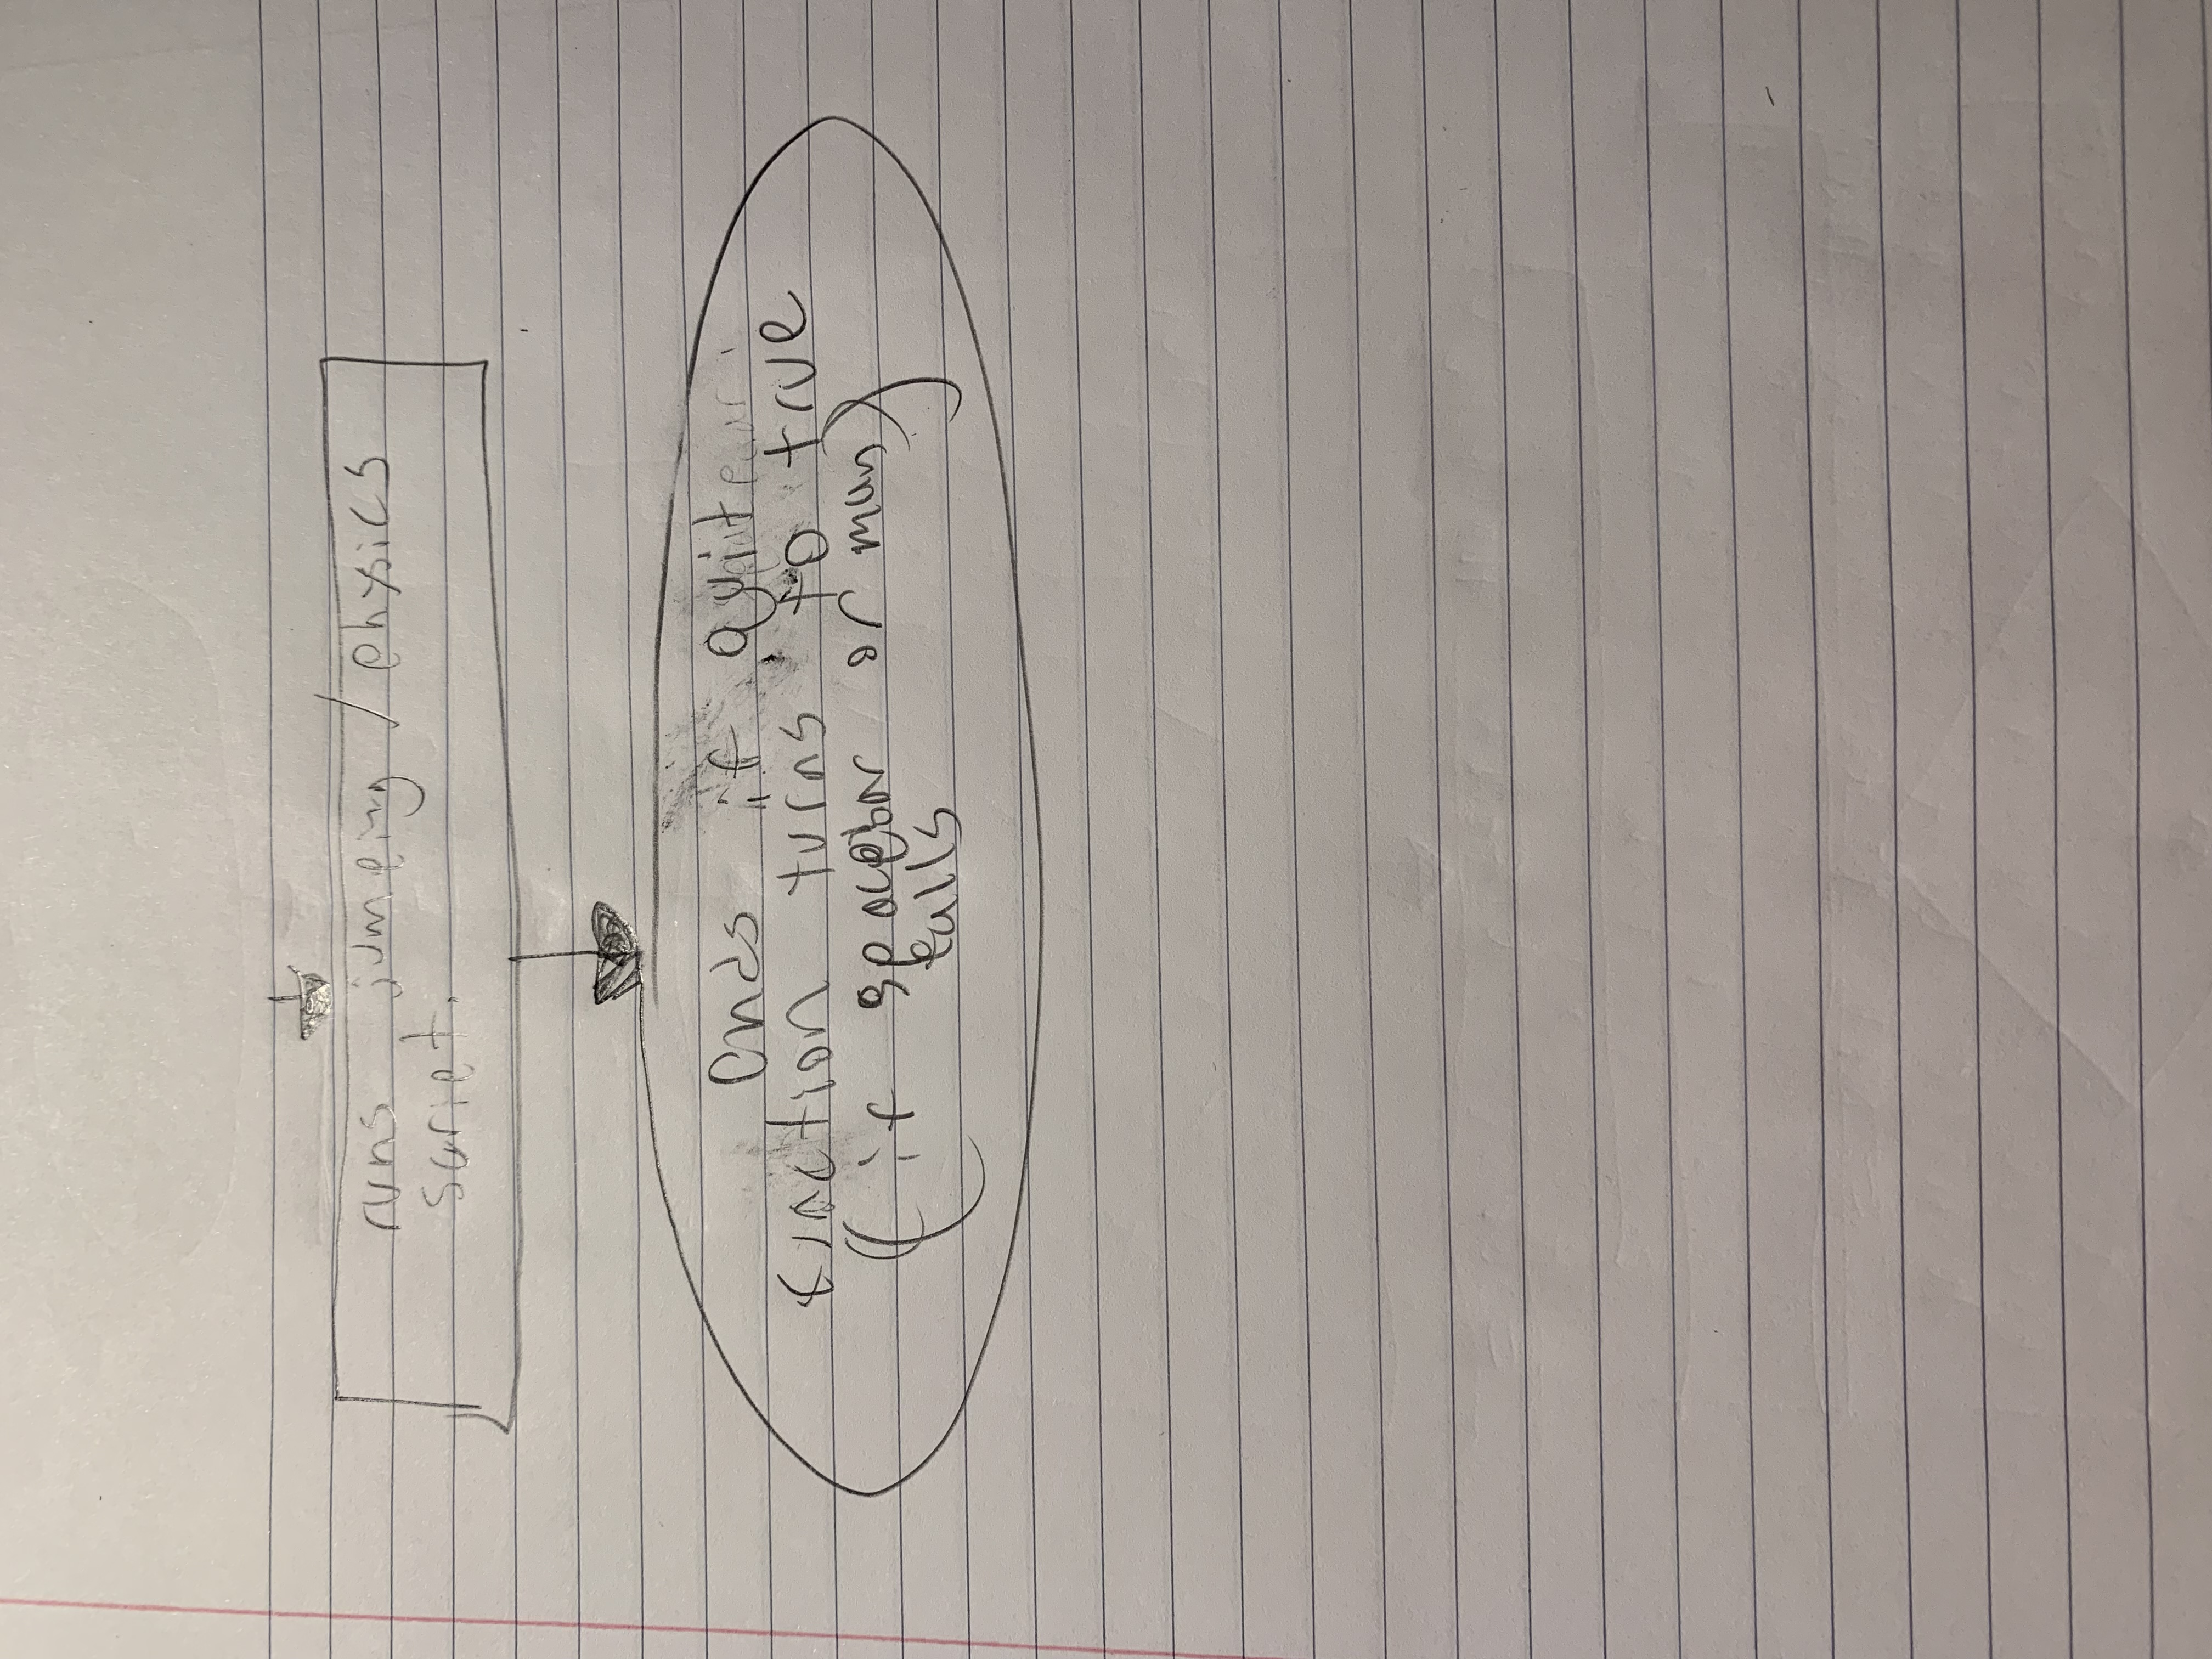 runs jumping / physics
script.
Ends if quit
function turns to true
(if spacebar or man)
falls